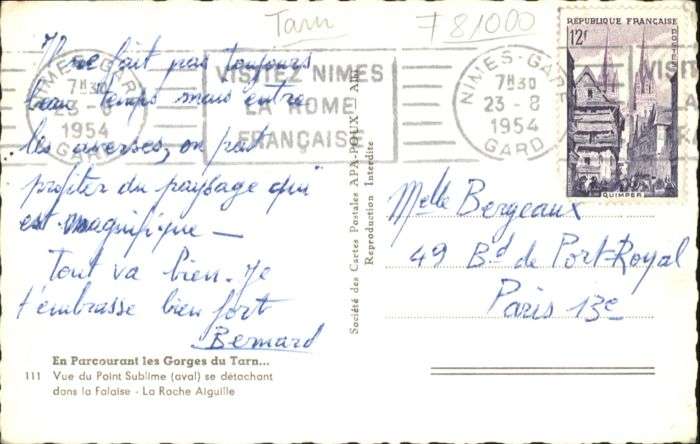 Tarn
781000
NIMES-GARE
7H30
23-8
1954
GARD
VISITEZ NIMES
LA ROME
FRANÇAISE
NIMES-GARE
7H30
23-8
1954
GARD
VISIT
REPUBLIQUE FRANÇAISE
12F
POSTES
QUIMPER
Il ne fait pas toujours
beau temps mais entre
les averses, on peut
profiter du paysage qui
est magnifique —
Tout va bien. Je
t'embrasse bien fort
Bernard
En Parcourant les Gorges du Tarn...
111 Vue du Point Sublime (aval) se détachant
dans la falaise - La Roche Aiguille
Société des Cartes Postales APA-POUX - Albi
Reproduction Interdite
Melle Bergeaux
49 Bd de Port-Royal
Paris 13e